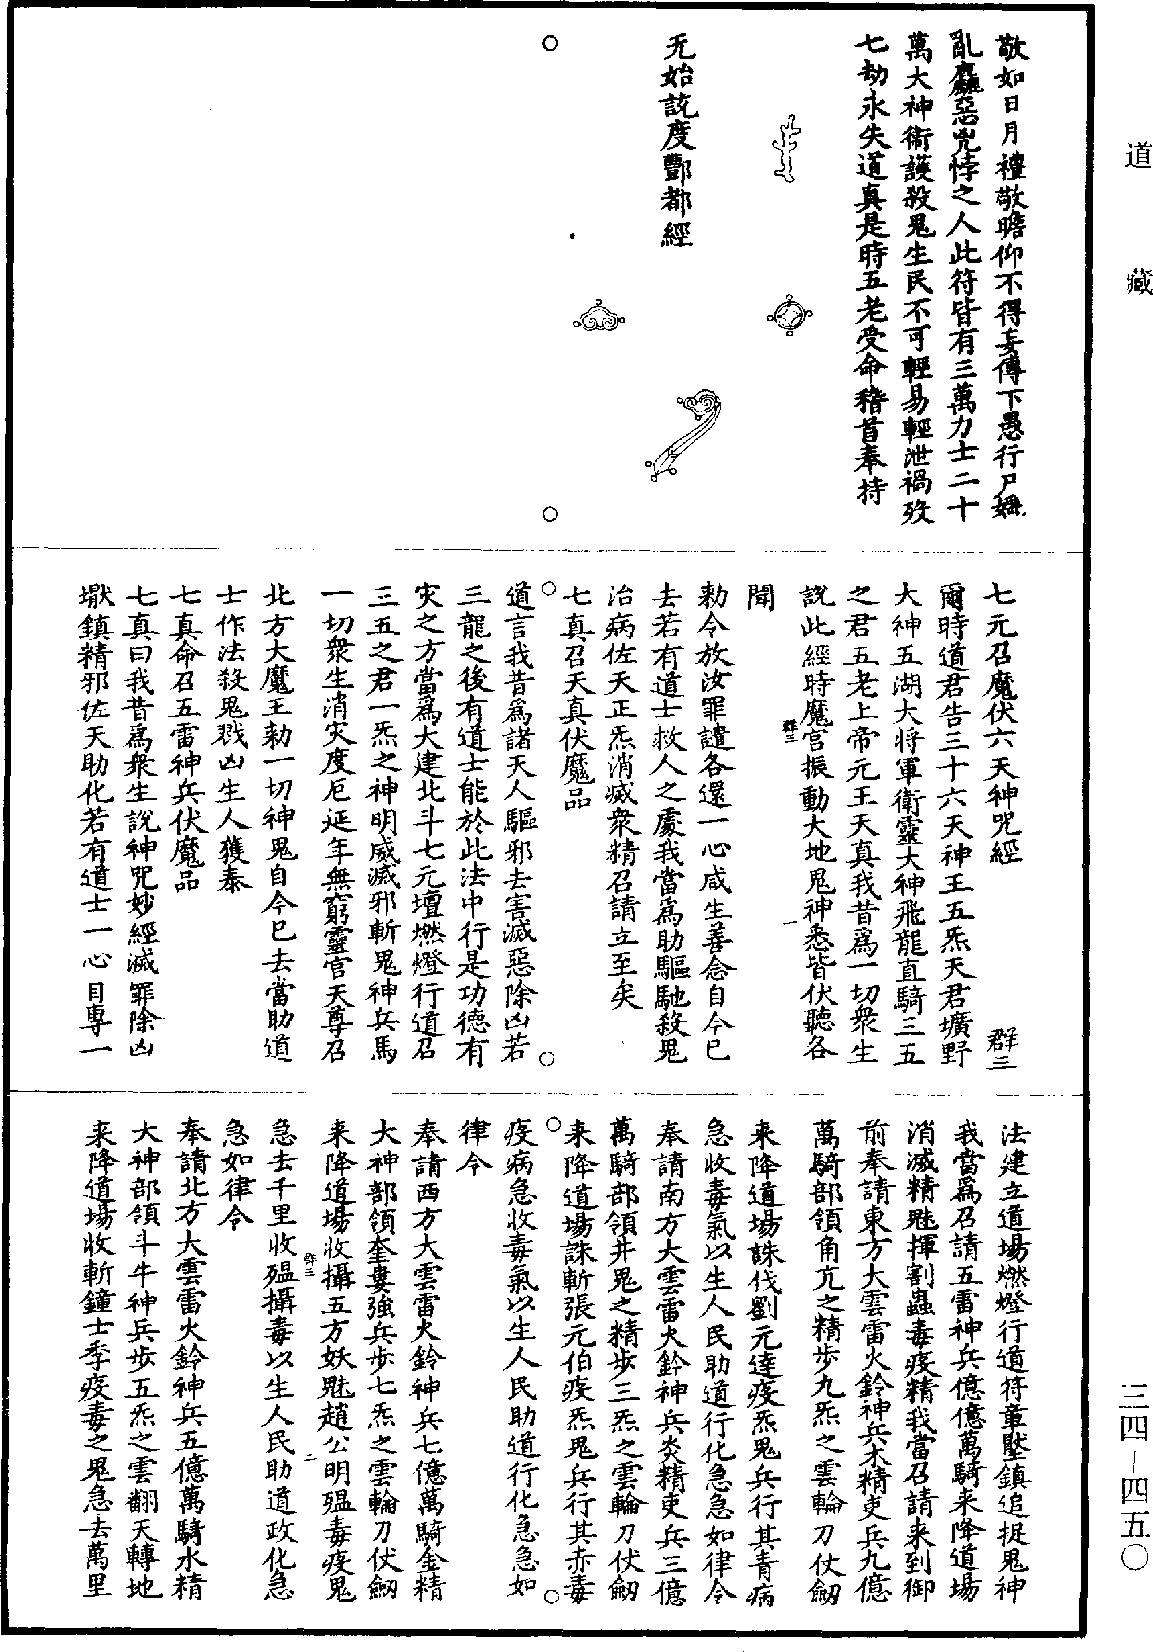 道藏
三四-四五〇
敬如日月禮敬瞻仰不得妄傳下愚行尸
亂麤惡兇悖之人此符皆有三萬力士二十
萬大神衛護殺鬼生民不可輕易輕泄禍及
七劫永失道真是時五老受命稽首奉持
无始說度酆都經
七元召魔伏六天神咒經
群三
爾時道君告三十六天神王五炁天君壙野
大神五湖大將軍衛靈大神飛龍直騎三五
之君五老上帝元王天真我昔為一切衆生
說此經時魔宮振動大地鬼神悉皆伏聽各
群三
一
聞
勑令放汝罪譴各還一心咸生善念自今已
去若有道士救人之處我當為助驅馳殺鬼
治病佐天正炁消滅衆精召請立至矣
七真召天真伏魔品
道言我昔為諸天人驅邪去害滅惡除凶若
三龍之後有道士能於此法中行是功德有
灾之方當為大建北斗七元壇燃燈行道召
三五之君一炁之神明威滅邪斬鬼神兵馬
一切衆生消灾度厄延年無窮靈官天尊召
北方大魔王勑一切神鬼自今已去當助道
士作法殺鬼戮凶生人獲泰
七真命召五雷神兵伏魔品
七真曰我昔為衆生說神咒妙經滅罪除凶
猒鎮精邪佐天助化若有道士一心目專一
法建立道場燃燈行道符章壓鎮追捉鬼神
我當為召請五雷神兵億億萬騎来降道場
消滅精魅揮割蟲毒疫精我當召請来到御
前奉請東方大雲雷火鈴神兵木精吏兵九億
萬騎部領角亢之精步九炁之雲輪刀仗劒
来降道場誅伐劉元達疫炁鬼兵行其青病
急收毒氣以生人民助道行化急急如律令
奉請南方大雲雷火鈴神兵炎精吏兵三億
萬騎部領井鬼之精步三炁之雲輪刀伏劒
来降道場誅斬張元伯疫炁鬼兵行其赤毒
疫病急收毒氣以生人民助道行化急急如
律令
奉請西方大雲雷火鈴神兵七億萬騎金精
大神部領奎婁強兵步七炁之雲輪刀伏劒
来降道場收攝五方妖魅趙公明殟毒疫鬼
群三
二
急去千里收殟攝毒以生人民助道政化急
急如律令
奉請北方大雲雷火鈴神兵五億萬騎水精
大神部領斗牛神兵步五炁之雲翻天轉地
来降道場收斬鐘士季疫毒之鬼急去萬里